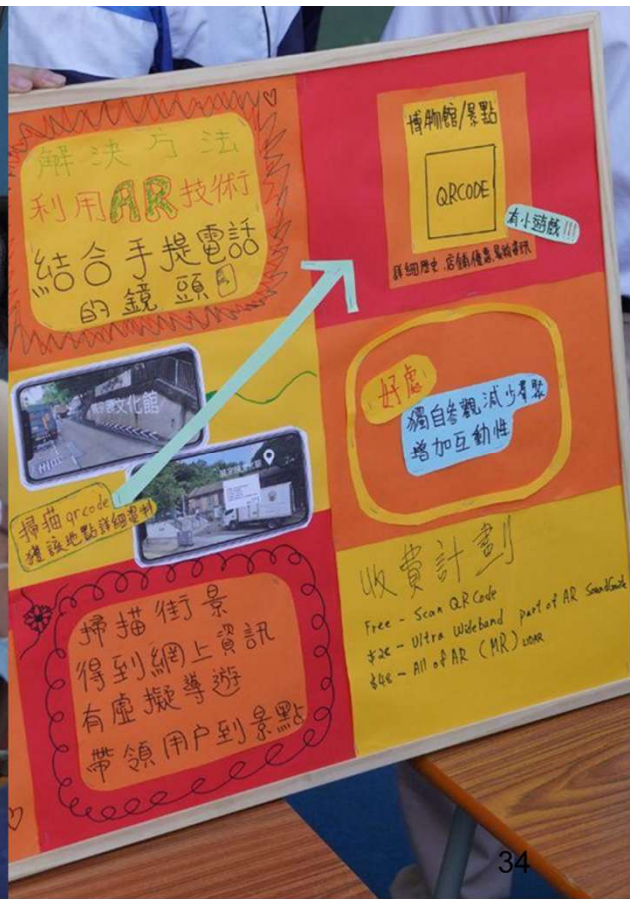 解決方法
利用AR技術
結合手提電話
的鏡頭
博物館/景點
QRCODE
有小遊戲!!!
詳細歷史,店鋪優惠,
文化館
掃描qrcode
獲該地點詳細資料
好處
獨自參觀減少羣聚
增加互動性
掃描街景
得到網上資訊
有虛擬導遊
帶領用户到景點
收費計劃
Free - Scan QR Code
$28 - Ultra Wideband part of AR SoundGuide
$48 - All of AR (MR) LiDAR
34